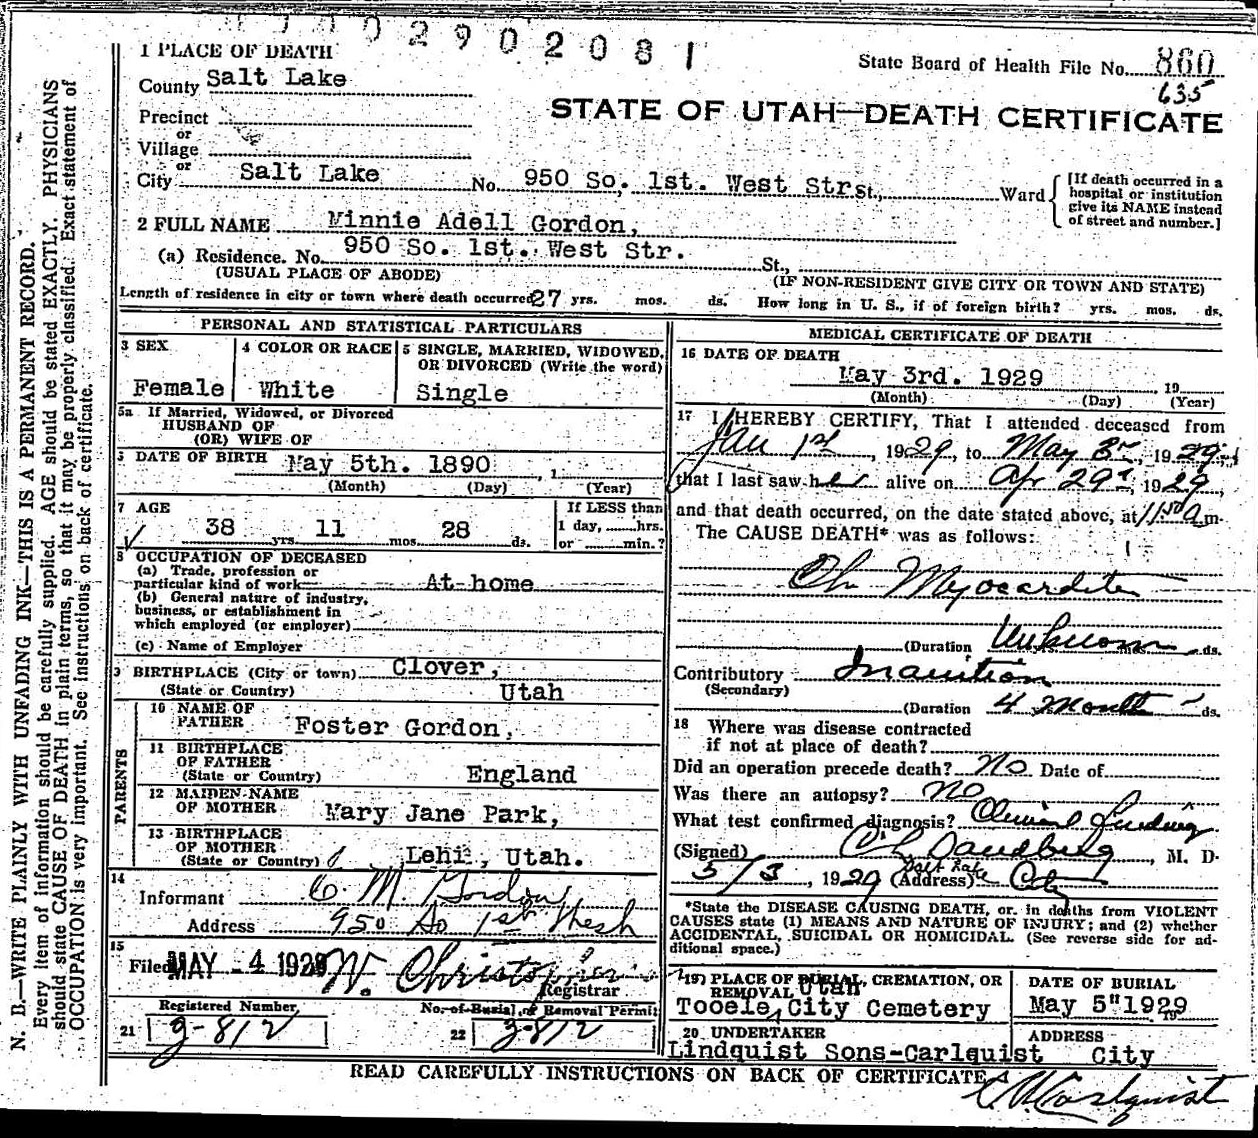 2902081
1 PLACE OF DEATH
State Board of Health File No. 860
635
County Salt Lake
STATE OF UTAH—DEATH CERTIFICATE
Precinct
or
Village
or
City Salt Lake No. 950 So. 1st. West Str. St., Ward
[If death occurred in a
hospital or institution
give its NAME instead
of street and number.]
2 FULL NAME Minnie Adell Gordon,
(a) Residence. No. 950 So. 1st. West Str. St.,
(USUAL PLACE OF ABODE) (IF NON-RESIDENT GIVE CITY OR TOWN AND STATE)
Length of residence in city or town where death occurred 27 yrs. mos. ds. How long in U. S., if of foreign birth? yrs. mos. ds.
PERSONAL AND STATISTICAL PARTICULARS
3 SEX
Female
4 COLOR OR RACE
White
5 SINGLE, MARRIED, WIDOWED,
OR DIVORCED (Write the word)
Single
5a If Married, Widowed, or Divorced
HUSBAND OF
(OR) WIFE OF
DATE OF BIRTH May 5th. 1890, 1
(Month) (Day) (Year)
7 AGE
38 yrs. 11 mos. 28 ds.
If LESS than
1 day, ......hrs.
or ......min.?
8 OCCUPATION OF DECEASED
(a) Trade, profession or
particular kind of work At home
(b) General nature of industry,
business, or establishment in
which employed (or employer)
(c) Name of Employer
BIRTHPLACE (City or town) Clover,
(State or Country) Utah
PARENTS
10 NAME OF
FATHER Foster Gordon,
11 BIRTHPLACE
OF FATHER
(State or Country) England
12 MAIDEN NAME
OF MOTHER Mary Jane Park,
13 BIRTHPLACE
OF MOTHER
(State or Country) Lehi, Utah.
14
Informant C. M. Gordon
Address 950 So 1st West
15
Filed MAY - 4 1929 W. Christopherson
Registrar
Registered Number
21 g-812
No. of Burial or Removal Permit
22 g-812
MEDICAL CERTIFICATE OF DEATH
16 DATE OF DEATH
May 3rd. 1929 19
(Month) (Day) (Year)
17 I HEREBY CERTIFY, That I attended deceased from
Jan 1st, 1929, to May 3rd, 1929,
that I last saw her alive on Apr 29, 1929,
and that death occurred, on the date stated above, at 11:50 a m.
The CAUSE DEATH* was as follows:
Ch Myocarditis
(Duration Unknown ds.
Contributory Inanition
(Secondary)
(Duration 4 Months ds.
18 Where was disease contracted
if not at place of death?
Did an operation precede death? No Date of
Was there an autopsy? No
What test confirmed diagnosis? Clinical findings
(Signed) Sandberg, M. D.
5/3, 1929 (Address) Salt Lake City
*State the DISEASE CAUSING DEATH, or, in deaths from VIOLENT
CAUSES state (1) MEANS AND NATURE OF INJURY; and (2) whether
ACCIDENTAL, SUICIDAL OR HOMICIDAL. (See reverse side for ad-
ditional space.)
19 PLACE OF BURIAL, CREMATION, OR
REMOVAL Utah
Tooele, City Cemetery
DATE OF BURIAL
May 5" 1929
19
20 UNDERTAKER
Lindquist Sons-Carlquist
ADDRESS
City
READ CAREFULLY INSTRUCTIONS ON BACK OF CERTIFICATE
Carlquist
N. B.—WRITE PLAINLY WITH UNFADING INK—THIS IS A PERMANENT RECORD.
Every item of information should be carefully supplied. AGE should be stated EXACTLY. PHYSICIANS
should state CAUSE OF DEATH in plain terms, so that it may be properly classified. Exact statement of
OCCUPATION is very important. See instructions on back of certificate.